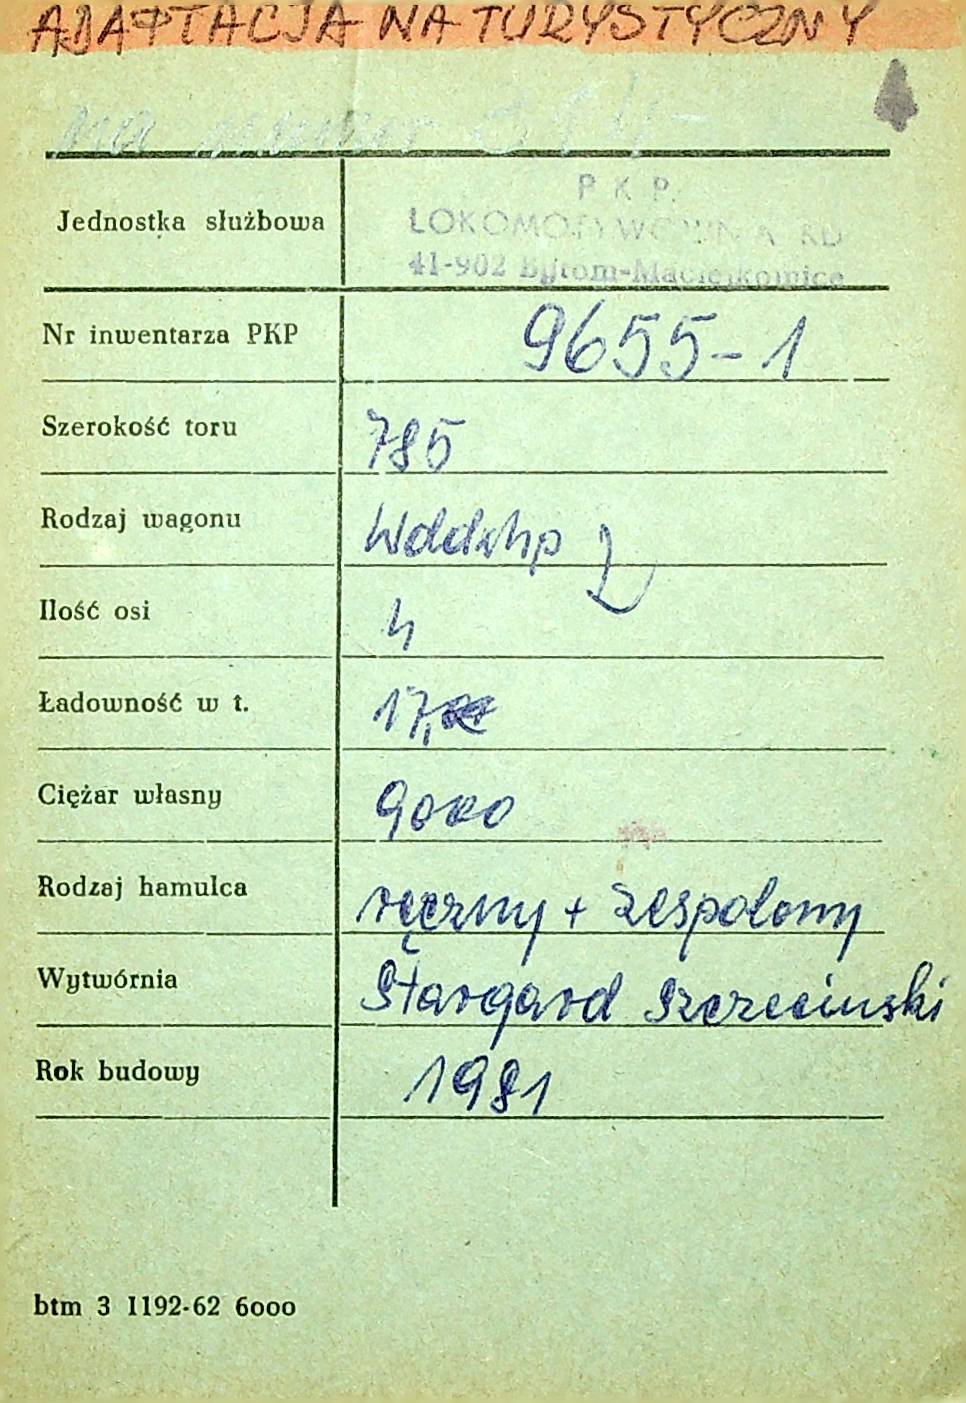 ADAPTACJA NA TURYSTYCZNY
na numer
Jednostka służbowa
P K P.
LOKOMOTYWOWNIA RD
41-902 Bytom-Maciejkowice
Nr inwentarza PKP 9655-1
Szerokość toru 785
Rodzaj wagonu Wddxhp
Ilość osi 4
Ładowność w t. 17,
Ciężar własny 9000
Rodzaj hamulca ręczny + zespolony
Wytwórnia Stargard Szczecinski
Rok budowy 1981
btm 3 1192-62 6000